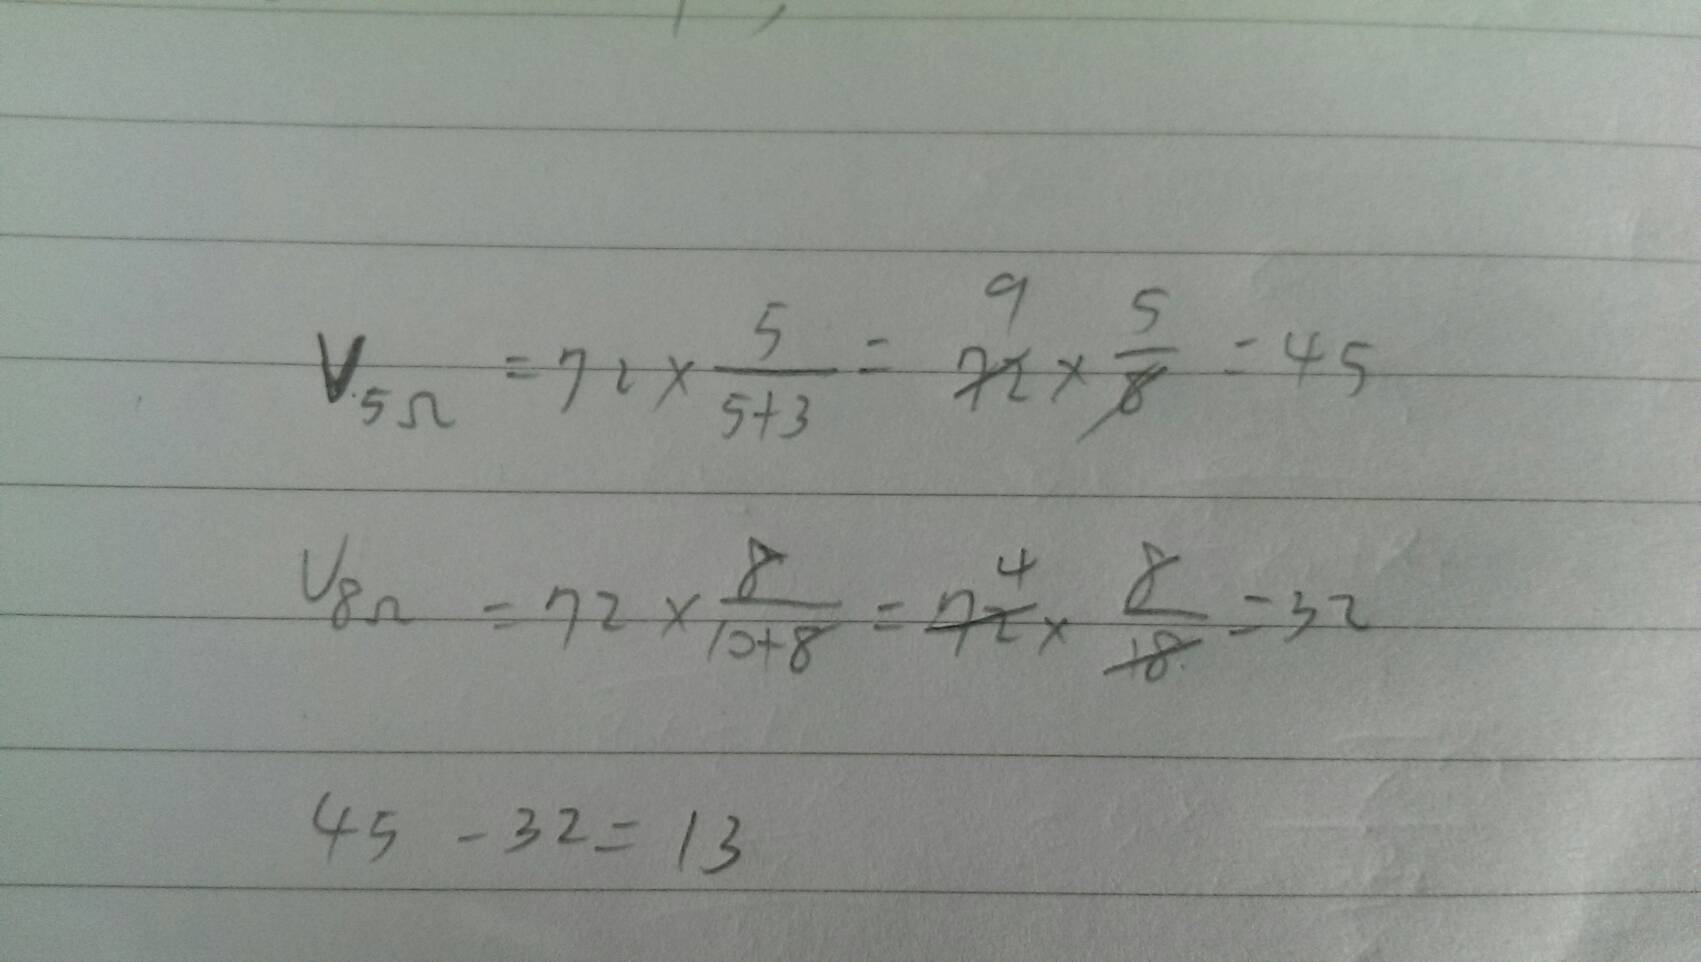 V5Ω = 72 × 5/(5+3) = 72 × 5/8 = 45
9
V8Ω = 72 × 8/(10+8) = 72 × 8/18 = 32
4
45 - 32 = 13